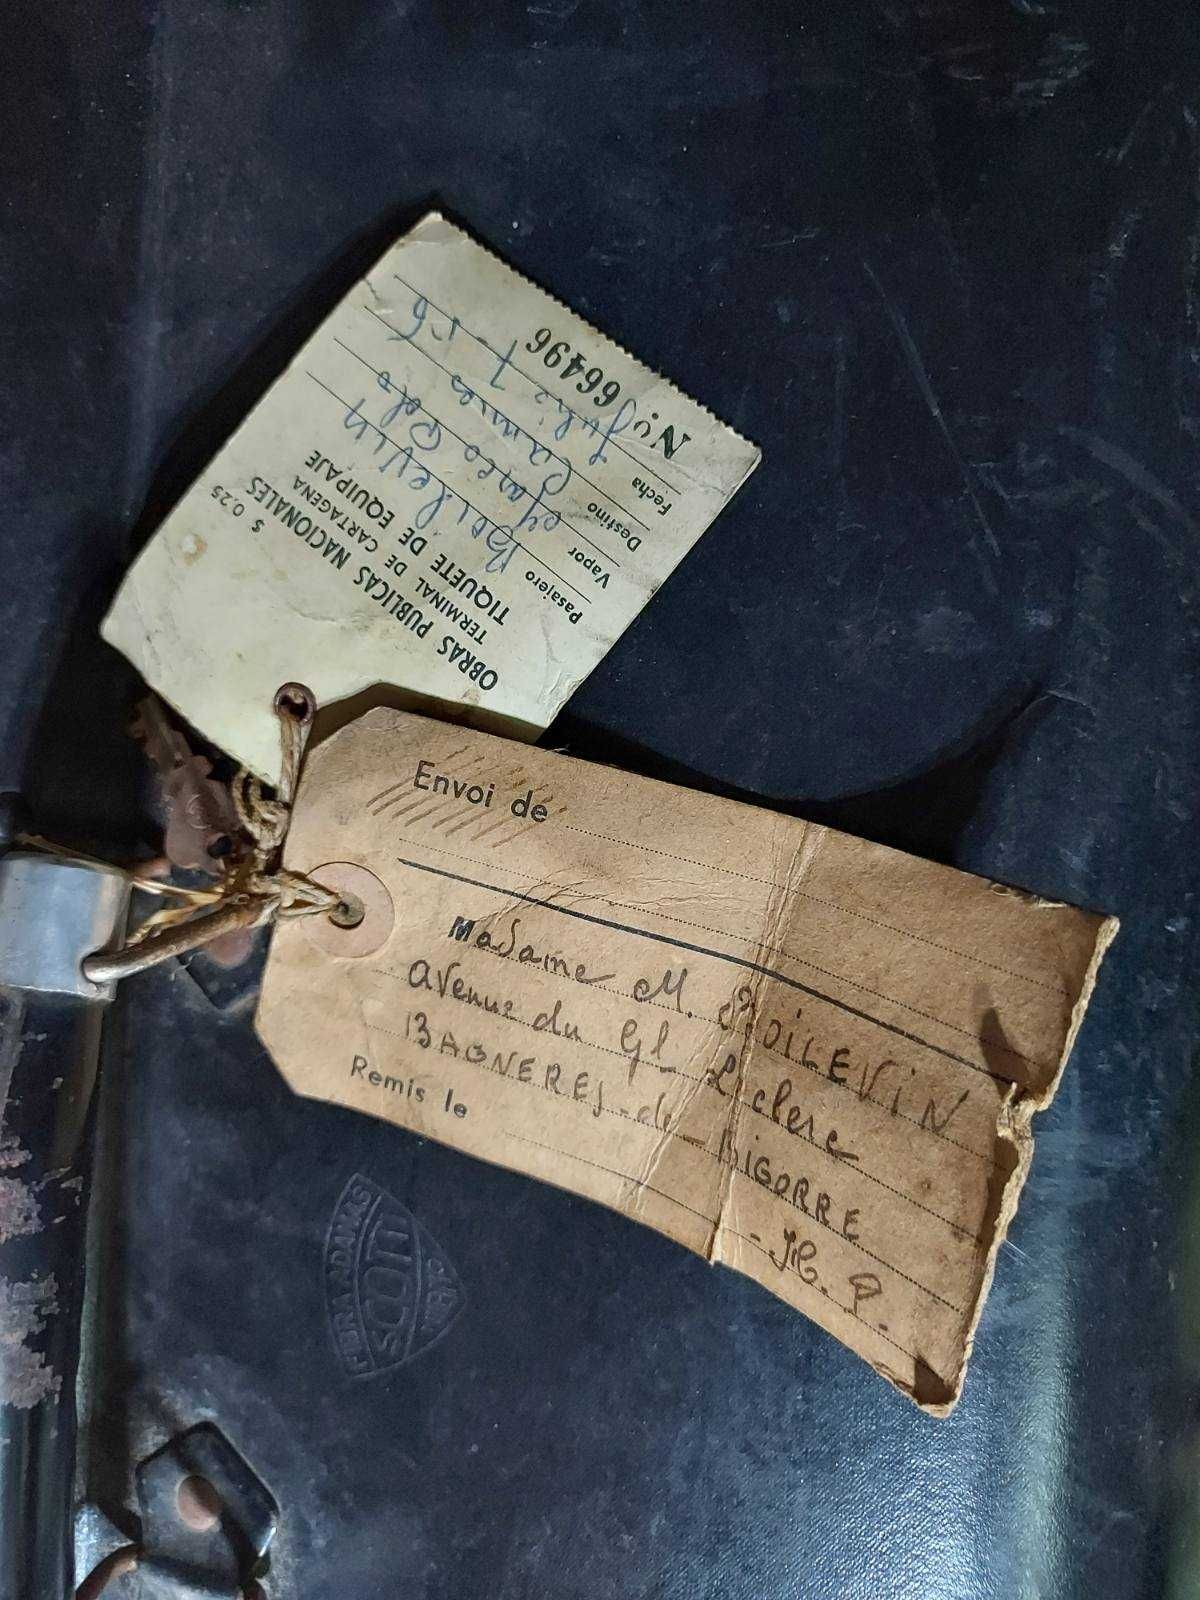 OBRAS PUBLICAS NACIONALES
TERMINAL DE CARTAGENA
TIQUETE DE EQUIPAJE
$ 0.25
Pasajero Boilevin
Vapor Marco Polo
Destino Cannes
Fecha Julio 7-56
No. 66496
Envoi de
Madame M. BOILEVIN
Avenue du Gl Leclerc
BAGNERES-de-BIGORRE
- H. P.
Remis le
FIBRA ADAMAS
SCOTTI